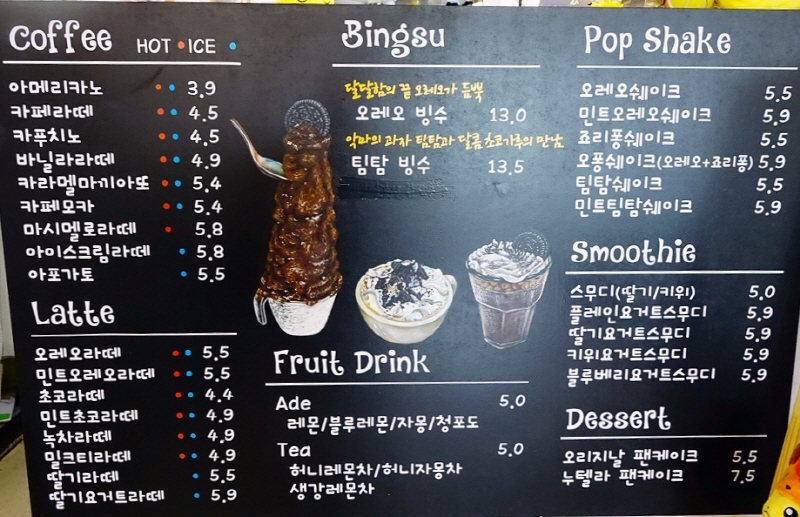 Coffee HOT ICE
아메리카노 3.9
카페라떼 4.5
카푸치노 4.5
바닐라라떼 4.9
카라멜마끼아또 5.4
카페모카 5.4
마시멜로라떼 5.8
아이스크림라떼 5.8
아포가토 5.5
Latte
오레오라떼 5.5
민트오레오라떼 5.5
초코라떼 4.4
민트초코라떼 4.9
녹차라떼 4.9
밀크티라떼 4.9
딸기라떼 5.5
딸기요거트라떼 5.9
Bingsu
달달함의 끝 오레오가 듬뿍
오레오 빙수 13.0
악마의 과자 팀탐과 달콤 초코가루의 만남
팀탐 빙수 13.5
Fruit Drink
Ade 5.0
레몬/블루레몬/자몽/청포도
Tea 5.0
허니레몬차/허니자몽차
생강레몬차
Pop Shake
오레오쉐이크 5.5
민트오레오쉐이크 5.9
죠리퐁쉐이크 5.5
오퐁쉐이크(오레오+죠리퐁) 5.9
팀탐쉐이크 5.5
민트팀탐쉐이크 5.9
Smoothie
스무디(딸기/키위) 5.0
플레인요거트스무디 5.9
딸기요거트스무디 5.9
키위요거트스무디 5.9
블루베리요거트스무디 5.9
Dessert
오리지날 팬케이크 5.5
누텔라 팬케이크 7.5